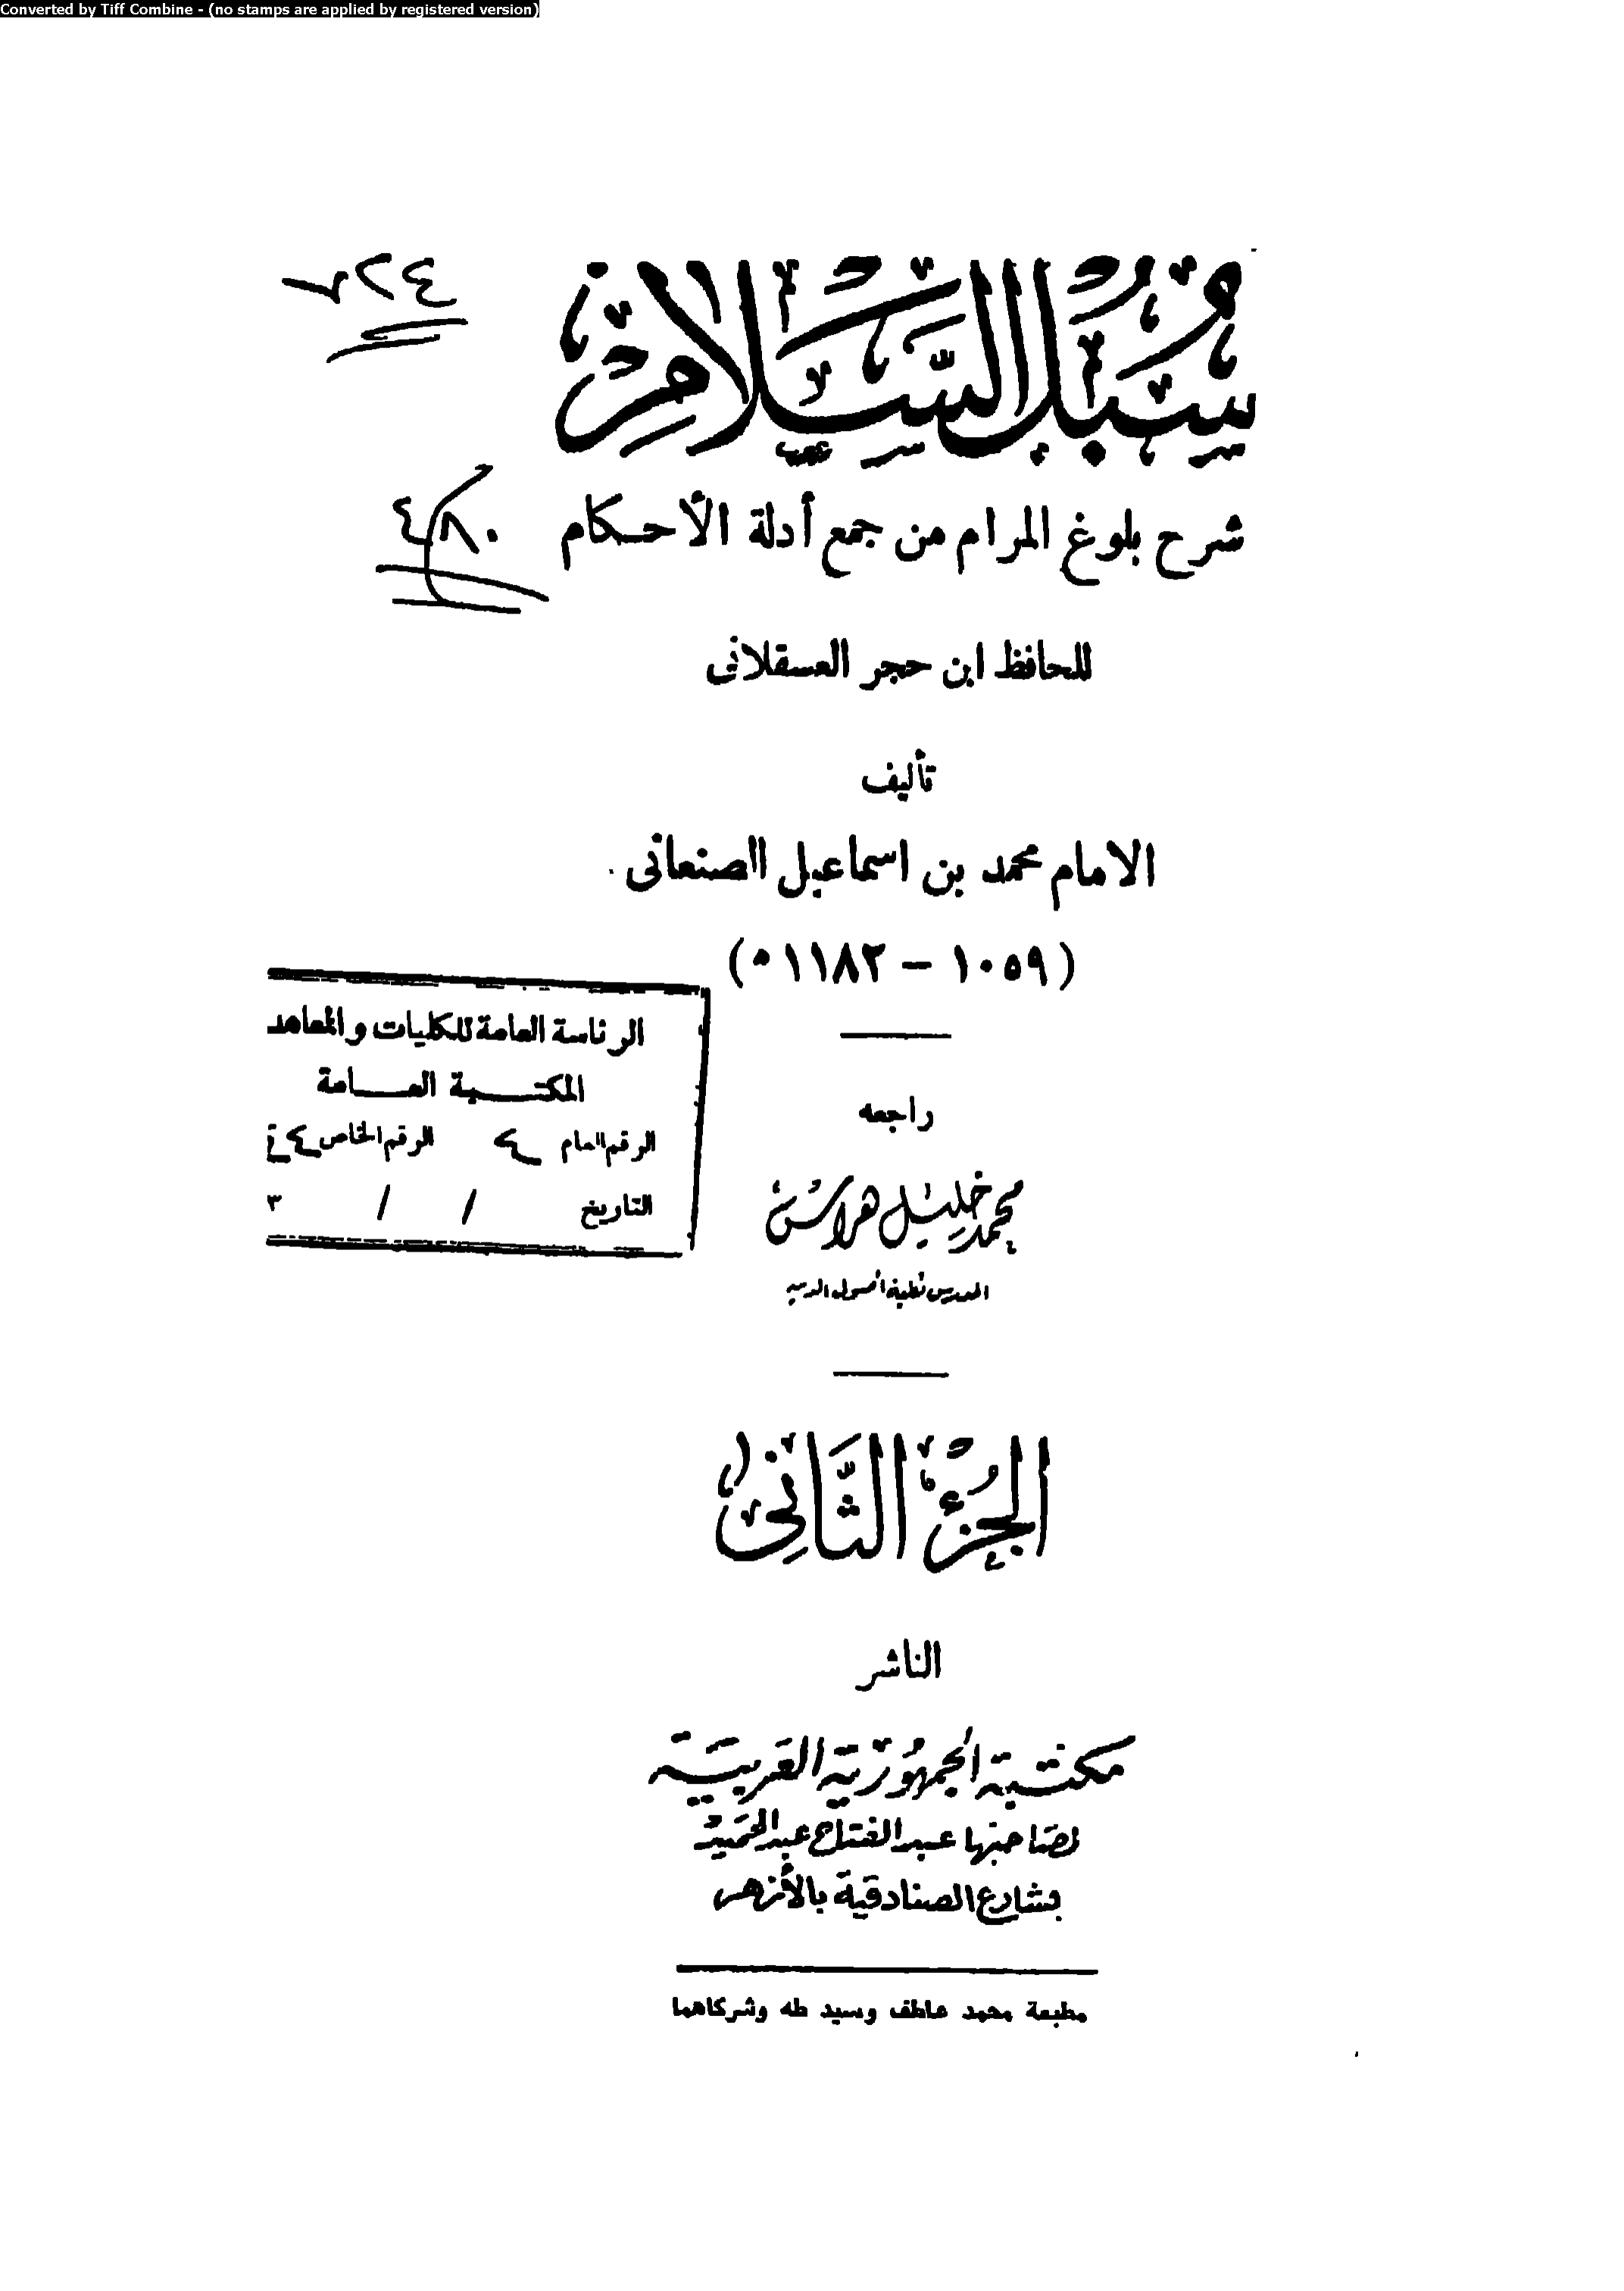 Converted by Tiff Combine - (no stamps are applied by registered version)
سُبُلُ السَّلَامِ
شرح بلوغ المرام من جمع أدلة الأحكام
٤٨٠
للحافظ ابن حجر العسقلانى
تأليف
الامام محمد بن اسماعيل الصنعانى
(١٠٥٩ - ١١٨٢ ه)
الرئاسة العامة للكليات والمعاهد
المكتبة العامة
الرقم العام
الرقم الخاص
التاريخ / /
راجعه
محمد خليل هراس
المدرس بكلية أصول الدين
الجزء الثَّانِى
الناشر
مكتبة الجمهورية العربية
لصاحبها عبد الفتاح عبد الحميد
بشارع الصنادقية بالأزهر
مطبعة محمد عاطف وسيد طه وشركاهما